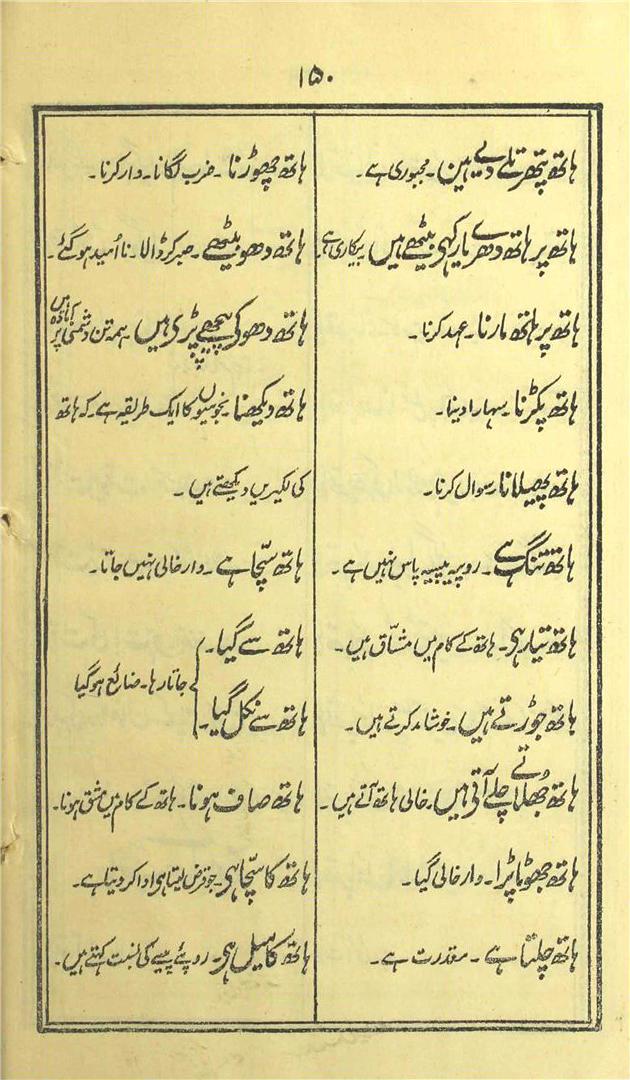 ۱۵۰
ہاتھ پتھر تلے دبے ہین۔ مجبوری ہے۔
ہاتھ پر ہاتھ دھرے یا رکہی بیٹھے ہیں بیکاری ہے
ہاتھ پر ہاتھ مارنا۔ عہد کرنا۔
ہاتھ پکڑنا۔ سہارا دینا۔
ہاتھ پھیلانا۔ سوال کرنا۔
ہاتھ تنگ ہے۔ روپیہ پیسیہ پاس نہیں ہے۔
ہاتھ تیار ہی۔ ہاتھ کے کام میں مشّاق ہیں۔
ہاتھ جوڑتے ہیں۔ خوشامد کرتے ہیں۔
ہاتھ جُھلاتے چلے آتی ہیں۔ خالی ہاتھ آتے ہیں۔
ہاتھ جھوٹا پڑا۔ وار خالی گیا۔
ہاتھ چلتا ہے۔ مقدرت ہے۔
ہاتھ چھوڑنا۔ ضرب لگانا۔ وار کرنا۔
ہاتھ دھو بیٹھے۔ صبر کر ڈالا۔ نا اُمید ہو گئے۔
ہاتھ دھو کی پیچھے پڑی ہیں ہمہ تن دشمنی پر آمادہ ہیں
ہاتھ دیکھنا۔ نجومیوں کا ایک طریقہ ہے۔ کہ ہاتھ
کی لکیریں دیکھتے ہیں۔
ہاتھ سچّا ہے۔ وار خالی نہیں جاتا۔
ہاتھ سے گیا۔
جاتا رہا۔ ضائع ہو گیا
ہاتھ سے نکل گیا۔
ہاتھ صاف ہونا۔ ہاتھ کے کام میں مشق ہونا۔
ہاتھ کا سچّا ہی۔ جو قرض لیتا ہی ادا کر دیتا ہے۔
ہاتھ کا میل ہی۔ روپئے پیسے کی نسبت کہتے ہیں۔